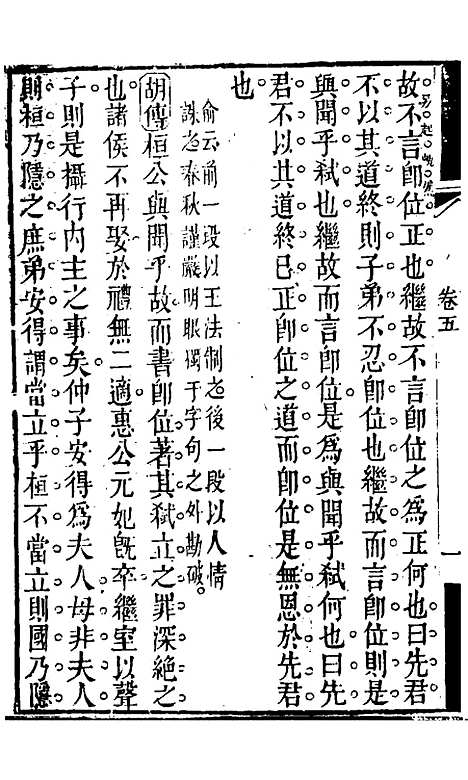 卷五
一
故不言卽位正也繼故不言卽位之爲正何也曰先君
不以其道終則子弟不忍卽位也繼故而言卽位則是
與聞乎弒也繼故而言卽位是爲與聞乎弒何也曰先
君不以其道終已正卽位之道而卽位是無恩於先君
也
俞云前一段以王法制之後一段以人情
誅之春秋謹嚴明眼獨于字句之外勘破
胡傳桓公與聞乎故而書卽位著其弒立之罪深絕之
也諸侯不再娶於禮無二適惠公元妃旣卒繼室以聲
子則是攝行內主之事矣仲子安得爲夫人母非夫人
則桓乃隱之庶弟安得謂當立乎桓不當立則國乃隱